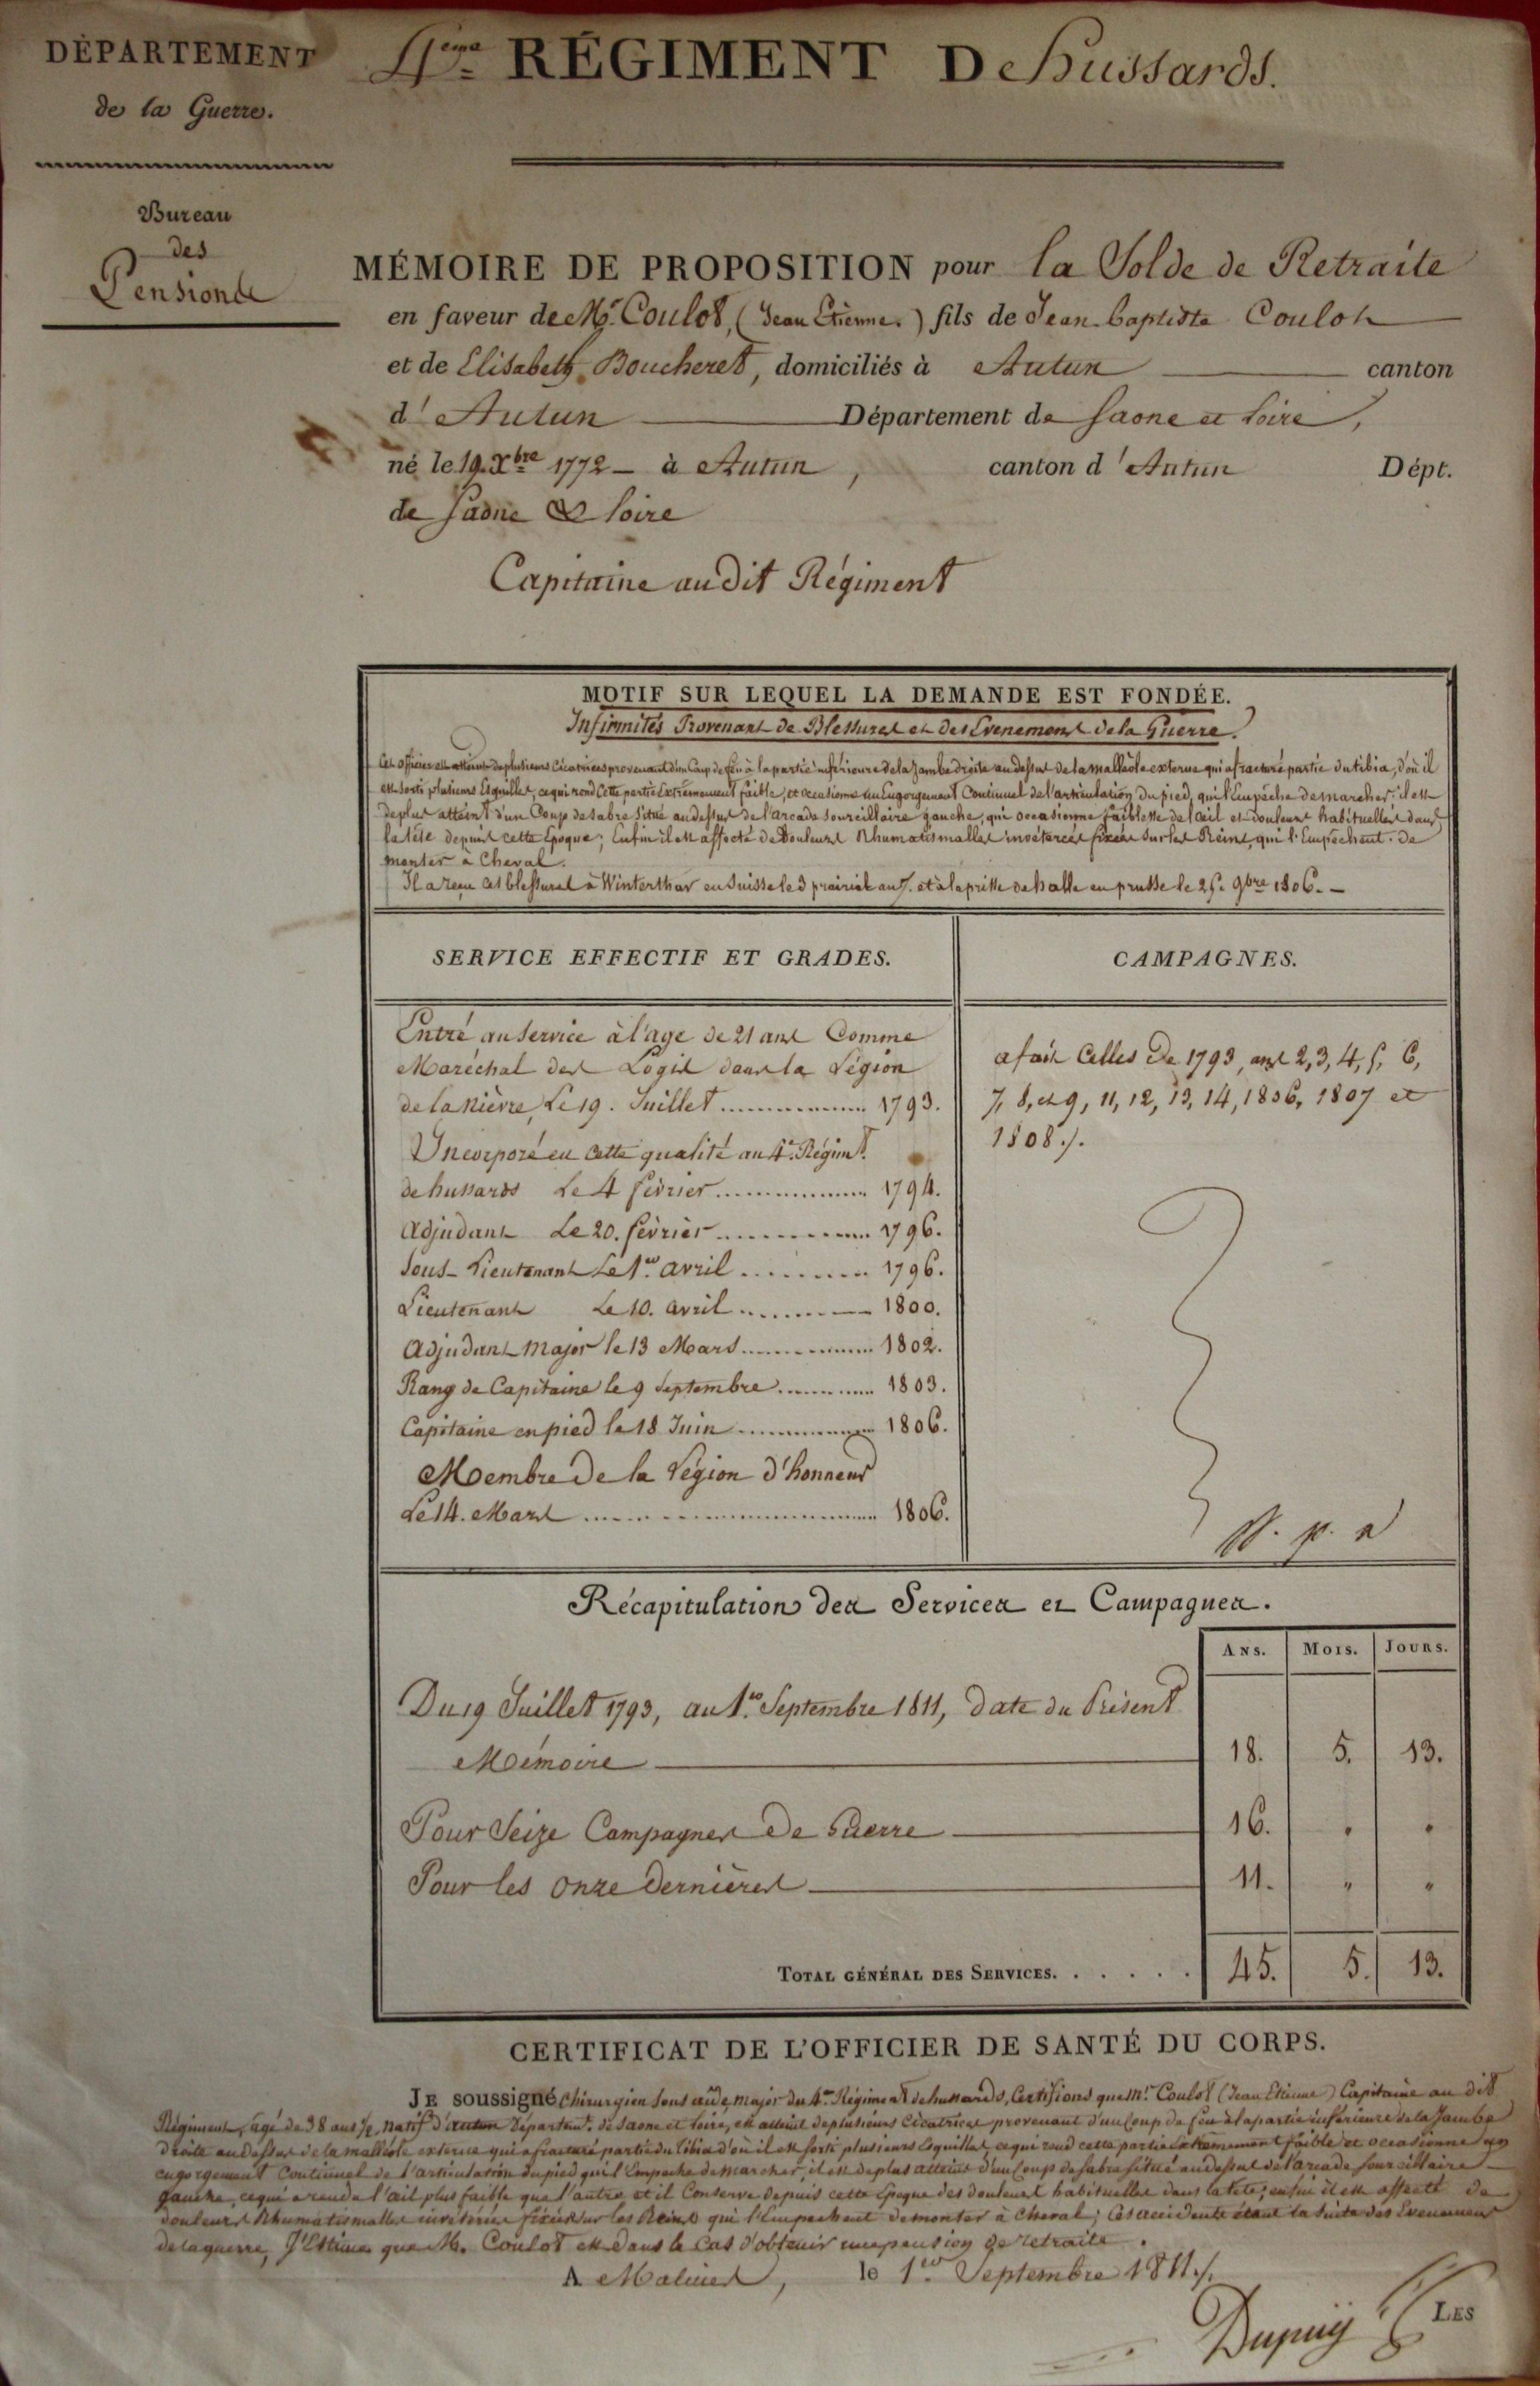 DÉPARTEMENT
de la Guerre.
Bureau
des
Pensions
4ème RÉGIMENT De hussards.
MÉMOIRE DE PROPOSITION pour la Solde de Retraite
en faveur de Mr. Coulot, (Jean Etienne.) fils de Jean-baptiste Coulot
et de Elisabeth Boucheret, domiciliés à Autun canton
d'Autun Département de Saone et Loire,
né le 19. Xbre 1772 - à Autun, canton d'Autun Dépt.
de Saone & Loire
Capitaine au dit Régiment
MOTIF SUR LEQUEL LA DEMANDE EST FONDÉE.
Infirmités Provenant de Blessures et des Evenemens de la Guerre.
Cet officier est atteint de plusieurs Cicatrices provenant d'un Coup de feu à la partie inférieure de la Jambe droite au dessus de la malléole externe qui a fracturé partie du tibia, d'où il
est sorti plusieurs Esquilles, ce qui rend Cette partie Extremement faible, et occasionne un Engorgement Continuel de l'articulation du pied, qui l'Empêche de marcher; il est
de plus atteint d'un Coup de sabre situé au dessus de l'arcade sourcillaire gauche, qui occasionne faiblesse de l'œil et douleurs habituelles dans
la tête depuis cette époque; Enfin il est affecté de Douleurs Rhumatismalles invéterées fixées sur les Reins, qui l'Empêchent de
monter à Cheval.
Il a reçu ces blessures à Winterthur en Suisse le 3 prairial an 7. et à la prise de halle en prusse le 25. 9bre 1806. -
SERVICE EFFECTIF ET GRADES.
Entré au Service à l'age de 21 ans Comme
Maréchal des Logis dans la Légion
de la Nièvre, Le 19. Juillet ............ 1793.
Incorporé en cette qualité au 4e. Régimt.
de hussards Le 4 février ............ 1794.
Adjudant Le 20. février ............ 1796.
Sous-Lieutenant Le 1er. avril ......... 1796.
Lieutenant Le 10. avril ............ 1800.
Adjudant Major le 13 Mars ............ 1802.
Rang de Capitaine le 9 Septembre ......... 1803.
Capitaine en pied le 18 Juin ............ 1806.
Membre de la Légion d'honneur
Le 14. Mars ............ 1806.
CAMPAGNES.
a fait Celles De 1793, ans 2, 3, 4, 5, 6,
7, 8, et 9, 11, 12, 13, 14, 1806, 1807 et
1808./.
Récapitulation des Services et Campagnes.
ANS. MOIS. JOURS.
Du 19 Juillet 1793, au 1er. Septembre 1811, date du Présent
Mémoire 18. 5. 13.
Pour Seize Campagnes De Guerre 16. " "
Pour les onze Dernières 11. " "
TOTAL GÉNÉRAL DES SERVICES. . . . . . 45. 5. 13.
CERTIFICAT DE L'OFFICIER DE SANTÉ DU CORPS.
JE soussigné Chirurgien Sous aide major du 4me. Régiment de hussards, Certifions que Mr. Coulot (Jean Etienne) Capitaine au dit
Régiment, agé de 38 ans 1/2, natif d'autun Départemt. de Saone et Loire, est atteint de plusieurs Cicatrices provenant d'un Coup de feu à la partie inférieure de la Jambe
Droite au dessus de la malléole externe qui a fracturé partie du tibia d'où il est sorti plusieurs Esquilles ce qui rend cette partie extremement faible et occasionne un
engorgement Continuel de l'articulation du pied qui l'Empeche de marcher, il est de plus atteint d'un Coup de sabre situé au dessus de l'arcade sourcillaire
gauche, ce qui a rendu l'œil plus faible que l'autre et il Conserve depuis cette époque des douleurs habituelles dans la tête; enfin il est affecté de
douleurs Rhumatismalles invéterées fixées sur les Reins qui l'Empechent de monter à Cheval; Ces accidents étant la suite des Evenemens
de la guerre, J'Estime que M. Coulot est dans le Cas d'obtenir une pension de retraite.
A Malines, le 1er. Septembre 1811./.
Dupuÿ
LES